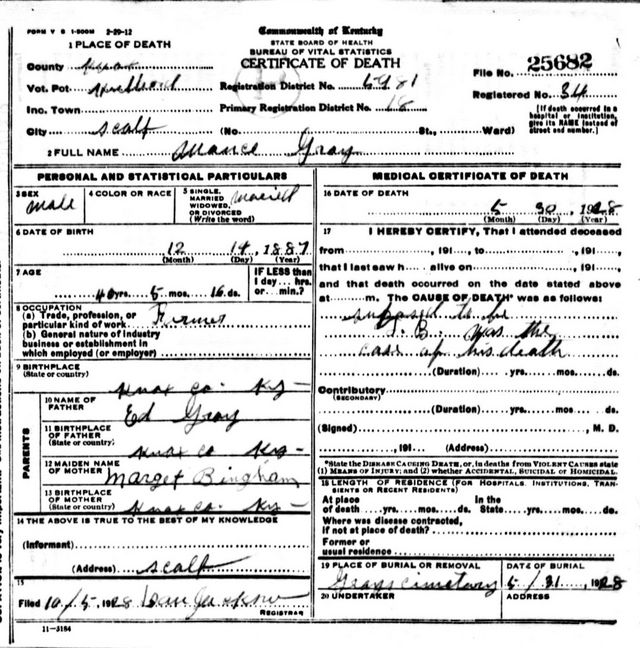 FORM V S 1-500M 2-29-12
Commonwealth of Kentucky
STATE BOARD OF HEALTH
BUREAU OF VITAL STATISTICS
CERTIFICATE OF DEATH
1 PLACE OF DEATH
County
Vot. Pct
Inc. Town
City Scalf (No. St., Ward)
Registration District No. 6981
Primary Registration District No. 18
File No. 25682
Registered No. 34
[If death occurred in a hospital or institution, give its NAME instead of street and number.]
2 FULL NAME Mance Gray
PERSONAL AND STATISTICAL PARTICULARS
3 SEX Male
4 COLOR OR RACE
5 SINGLE, MARRIED WIDOWED, OR DIVORCED (Write the word)
6 DATE OF BIRTH
12 14, 1887
(Month) (Day) (Year)
7 AGE
40 yrs. 5 mos. 16 ds.
IF LESS than 1 day... hrs. or min.?
8 OCCUPATION
(a) Trade, profession, or particular kind of work Firmer
(b) General nature of industry business or establishment in which employed (or employer)
9 BIRTHPLACE
(State or country)
Knox Co. Ky
PARENTS
10 NAME OF FATHER Ed Gray
11 BIRTHPLACE OF FATHER (State or country) Knox Co Ky
12 MAIDEN NAME OF MOTHER Marget Bingham
13 BIRTHPLACE OF MOTHER (State or country) Knox Co. Ky
14 THE ABOVE IS TRUE TO THE BEST OF MY KNOWLEDGE
(Informant)
(Address) Scalf
15
Filed 10/5, 1928
REGISTRAR
11-3184
MEDICAL CERTIFICATE OF DEATH
16 DATE OF DEATH
5 30, 1928
(Month) (Day) (Year)
17 I HEREBY CERTIFY, That I attended deceased
from , 191 , to , 191 ,
that I last saw h alive on , 191 ,
and that death occurred on the date stated above
at m. The CAUSE OF DEATH* was as follows:
suposed to be
T. B. was the
case of his death
(Duration) yrs. mos. ds.
Contributory
(SECONDARY)
(Duration) yrs. mos. ds.
(Signed) , M. D.
, 191 (Address)
*State the DISEASE CAUSING DEATH, or, in deaths from VIOLENT CAUSES state (1) MEANS OF INJURY; and (2) whether ACCIDENTAL, SUICIDAL or HOMICIDAL
18 LENGTH OF RESIDENCE (FOR HOSPITALS, INSTITUTIONS, TRANSIENTS OR RECENT RESIDENTS)
At place of death yrs. mos. ds. In the State yrs. mos. ds.
Where was disease contracted, if not at place of death?
Former or usual residence
19 PLACE OF BURIAL OR REMOVAL
Grays cimetary
DATE OF BURIAL
5/31, 1928
20 UNDERTAKER
ADDRESS